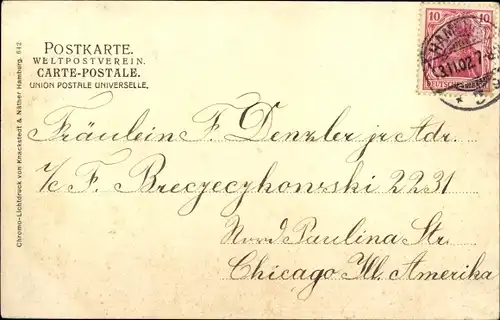 POSTKARTE.
WELTPOSTVEREIN.
CARTE-POSTALE.
UNION POSTALE UNIVERSELLE.
10 10
HAMBURG
3.11.02.7-8
DEUTSCHES REICH
Chromo-Lichtdruck von Knackstedt & Näther Hamburg. 642
Fräulein F. Denzler jr Adr.
℅ F. Brecyecykowski 2231
Nord Paulina Str.
Chicago Ill. Amerika